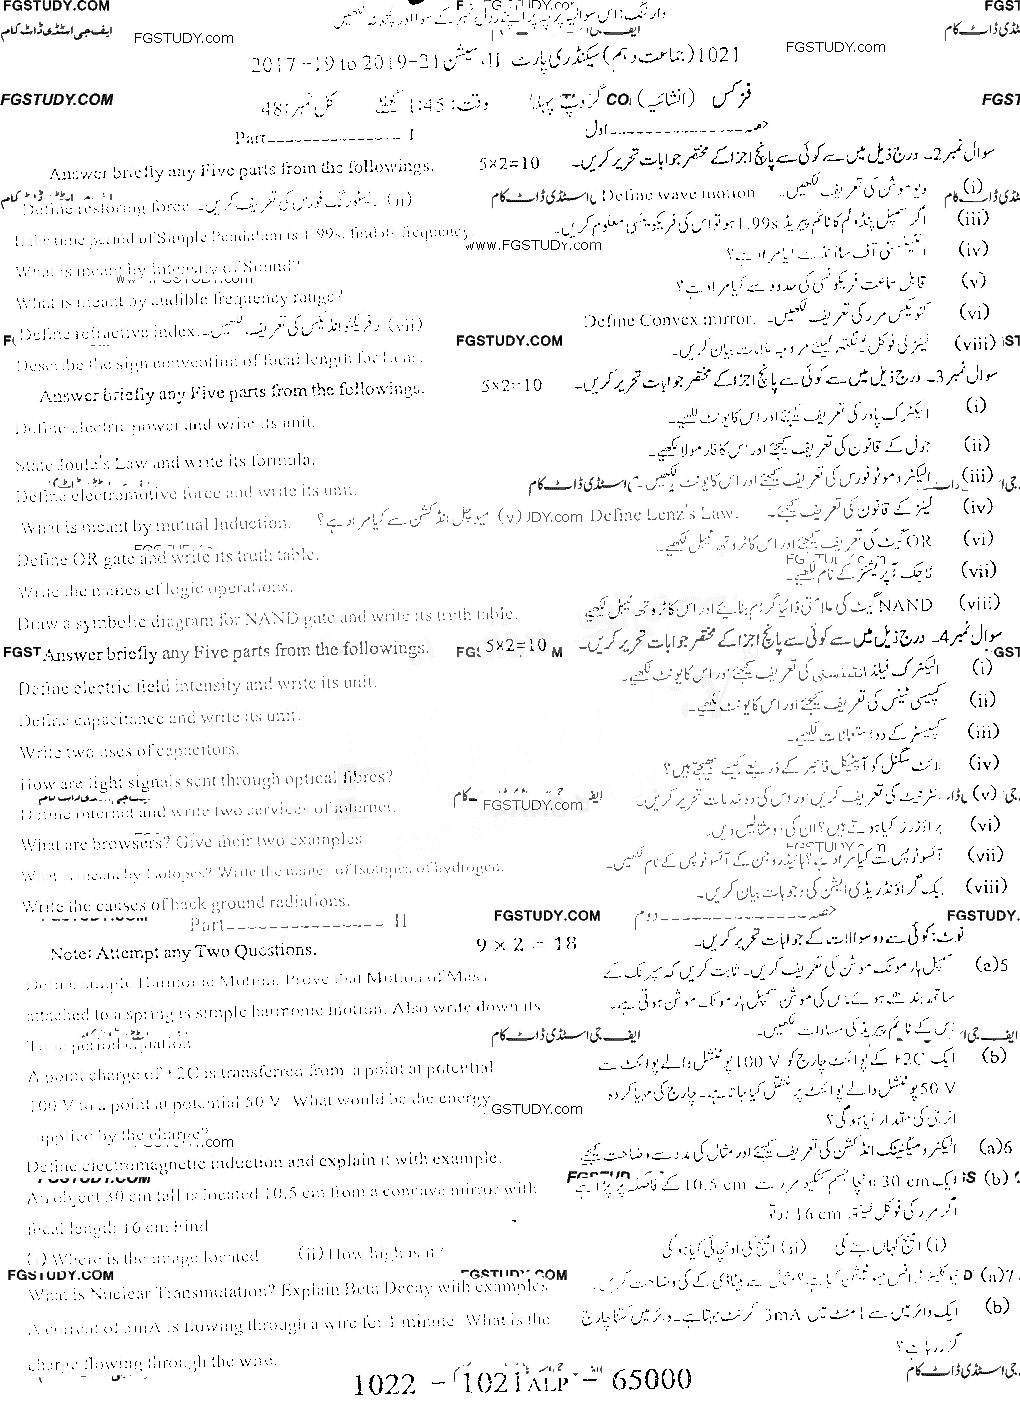 FGSTUDY.COM
وارننگ: اس سوالیہ پرچہ پر اپنے رول نمبر کے سوا اور کچھ نہ لکھیں
ایف جی اسٹڈی ڈاٹ کام FGSTUDY.com
1021 (جماعت دہم) سیکنڈری پارٹ II، سیشن 2019-21 to 2017-19
FGSTUDY.COM فزکس (انشائیہ) گروپ پہلا وقت: 1:45 گھنٹے کل نمبر: 48
Part I حصہ اول
Answer briefly any Five parts from the followings. 5×2=10 سوال نمبر 2۔ درج ذیل میں سے کوئی سے پانچ اجزا کے مختصر جوابات تحریر کریں۔
Define restoring force. ریسٹورنگ فورس کی تعریف کریں۔ (ii) Define wave motion ویو موشن کی تعریف لکھیں۔ (i)
If the time period of Simple Pendulum is 1.99s, find its frequency. اگر سمپل پنڈولم کا ٹائم پیریڈ 1.99s ہو تو اس کی فریکوئنسی معلوم کریں۔ (iii)
www.FGSTUDY.com
What is meant by Intensity of Sound? انٹینسٹی آف ساؤنڈ سے کیا مراد ہے؟ (iv)
What is meant by audible frequency range? قابل سماعت فریکوئنسی کی حدود سے کیا مراد ہے؟ (v)
Define refractive index. رفریکٹو انڈیکس کی تعریف لکھیں۔ (vii) Define Convex mirror. کنویکس مرر کی تعریف لکھیں۔ (vi)
FGSTUDY.COM
Describe the sign convention of focal length for Lens. (viii)
Answer briefly any Five parts from the followings. 5×2=10 سوال نمبر 3۔ درج ذیل میں سے کوئی سے پانچ اجزا کے مختصر جوابات تحریر کریں۔
Define electric power and write its unit. الیکٹرک پاور کی تعریف کیجئے اور اس کا یونٹ لکھیے۔ (i)
State Joule's Law and write its formula. جول کے قانون کی تعریف کیجئے اور اس کا فارمولا لکھیے۔ (ii)
Define electromotive force and write its unit. الیکٹرو موٹو فورس کی تعریف کیجئے اور اس کا یونٹ لکھیے۔ (iii)
What is meant by mutual Induction. میوچل انڈکشن سے کیا مراد ہے؟ (v) Define Lenz's Law. لینز کے قانون کی تعریف کیجئے۔ (iv)
Define OR gate and write its truth table. OR گیٹ کی تعریف کیجئے اور اس کا ٹروتھ ٹیبل لکھیے۔ (vi)
Write the names of logic operations. لاجک آپریشنز کے نام لکھیے۔ (vii)
Draw a symbolic diagram for NAND gate and write its truth table. NAND گیٹ کی علامتی ڈائیاگرام بنائیے اور اس کا ٹروتھ ٹیبل لکھیے (viii)
Answer briefly any Five parts from the followings. 5×2=10 سوال نمبر 4۔ درج ذیل میں سے کوئی سے پانچ اجزا کے مختصر جوابات تحریر کریں۔
Define electric field intensity and write its unit. الیکٹرک فیلڈ انٹینسٹی کی تعریف کیجئے اور اس کا یونٹ لکھیے۔ (i)
Define capacitance and write its unit. کپیسی ٹینس کی تعریف کیجئے اور اس کا یونٹ لکھیے۔ (ii)
Write two uses of capacitors. کپیسٹر کے دو استعمالات لکھیے۔ (iii)
How are light signals sent through optical fibres? لائٹ سگنل کو آپٹیکل فائبر کے ذریعے کیسے بھیجتے ہیں؟ (iv)
Define internet and write two services of internet. انٹرنیٹ کی تعریف کریں اور اس کی دو خدمات تحریر کریں۔ (v)
FGSTUDY.com
What are browsers? Give their two examples. براؤزرز کیا ہوتے ہیں؟ ان کی دو مثالیں دیں۔ (vi)
What is meant by Isotopes? Write the names of Isotopes of hydrogen. آئسوٹوپس سے کیا مراد ہے؟ ہائیڈروجن کے آئسوٹوپس کے نام لکھیں۔ (vii)
Write the causes of back ground radiations. بیک گراؤنڈ ریڈی ایشن کی وجوہات بیان کریں۔ (viii)
Part II FGSTUDY.COM حصہ دوم
Note: Attempt any Two Questions. 9 × 2 = 18 نوٹ: کوئی سے دو سوالات کے جوابات تحریر کریں۔
Define Simple Harmonic Motion. Prove that Motion of Mass سمپل ہارمونک موشن کی تعریف کریں۔ ثابت کریں کہ سپرنگ کے 5(a)
attached to a spring is simple harmonic motion. Also write down its ساتھ بندھے ہوئے ماس کی موشن سمپل ہارمونک موشن ہوتی ہے۔
Time period equation اس کے ٹائم پیریڈ کی مساوات لکھیں۔
A point charge of +2C is transferred from a point at potential ایک +2C کے پوائنٹ چارج کو 100 V پوٹینشل والے پوائنٹ سے (b)
100 V to a point at potential 50 V. What would be the energy 50 V پوٹینشل والے پوائنٹ پر منتقل کیا جاتا ہے۔ چارج کی مہیا کردہ
supplied by the charge? انرجی کی مقدار کیا ہو گی؟
Define electromagnetic induction and explain it with example. الیکٹرو میگنیٹک انڈکشن کی تعریف کیجئے اور مثال کی مدد سے وضاحت کیجئے 6(a)
An object 30 cm tall is located 10.5 cm from a concave mirror with (b)
focal length 16 cm Find
(i) Where is the image located (ii) How high is it? (i) امیج کہاں بنے گی (ii) امیج کی اونچائی کیا ہو گی
FGSTUDY.COM
What is Nuclear Transmutation? Explain Beta Decay with examples 7(a)
A current of 3mA is flowing through a wire for 1 minute. What is the ایک وائر میں سے 1 منٹ میں 3mA کرنٹ بہتا ہے۔ وائر میں کتنا چارج (b)
charge flowing through the wire. گزر رہا ہے؟
1022 – 1021 ALP – 65000
ایف جی اسٹڈی ڈاٹ کام